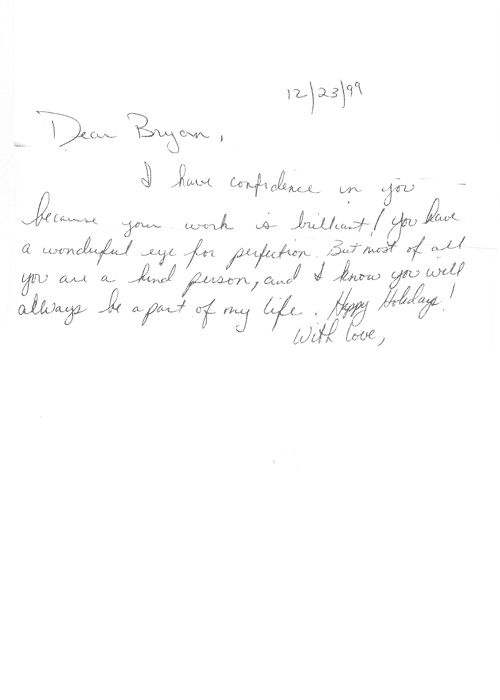 12/23/99
Dear Bryan,
I have confidence in you
because your work is brilliant! You have
a wonderful eye for perfection. But most of all
you are a kind person, and I know you will
always be a part of my life. Happy Holidays!
With love,